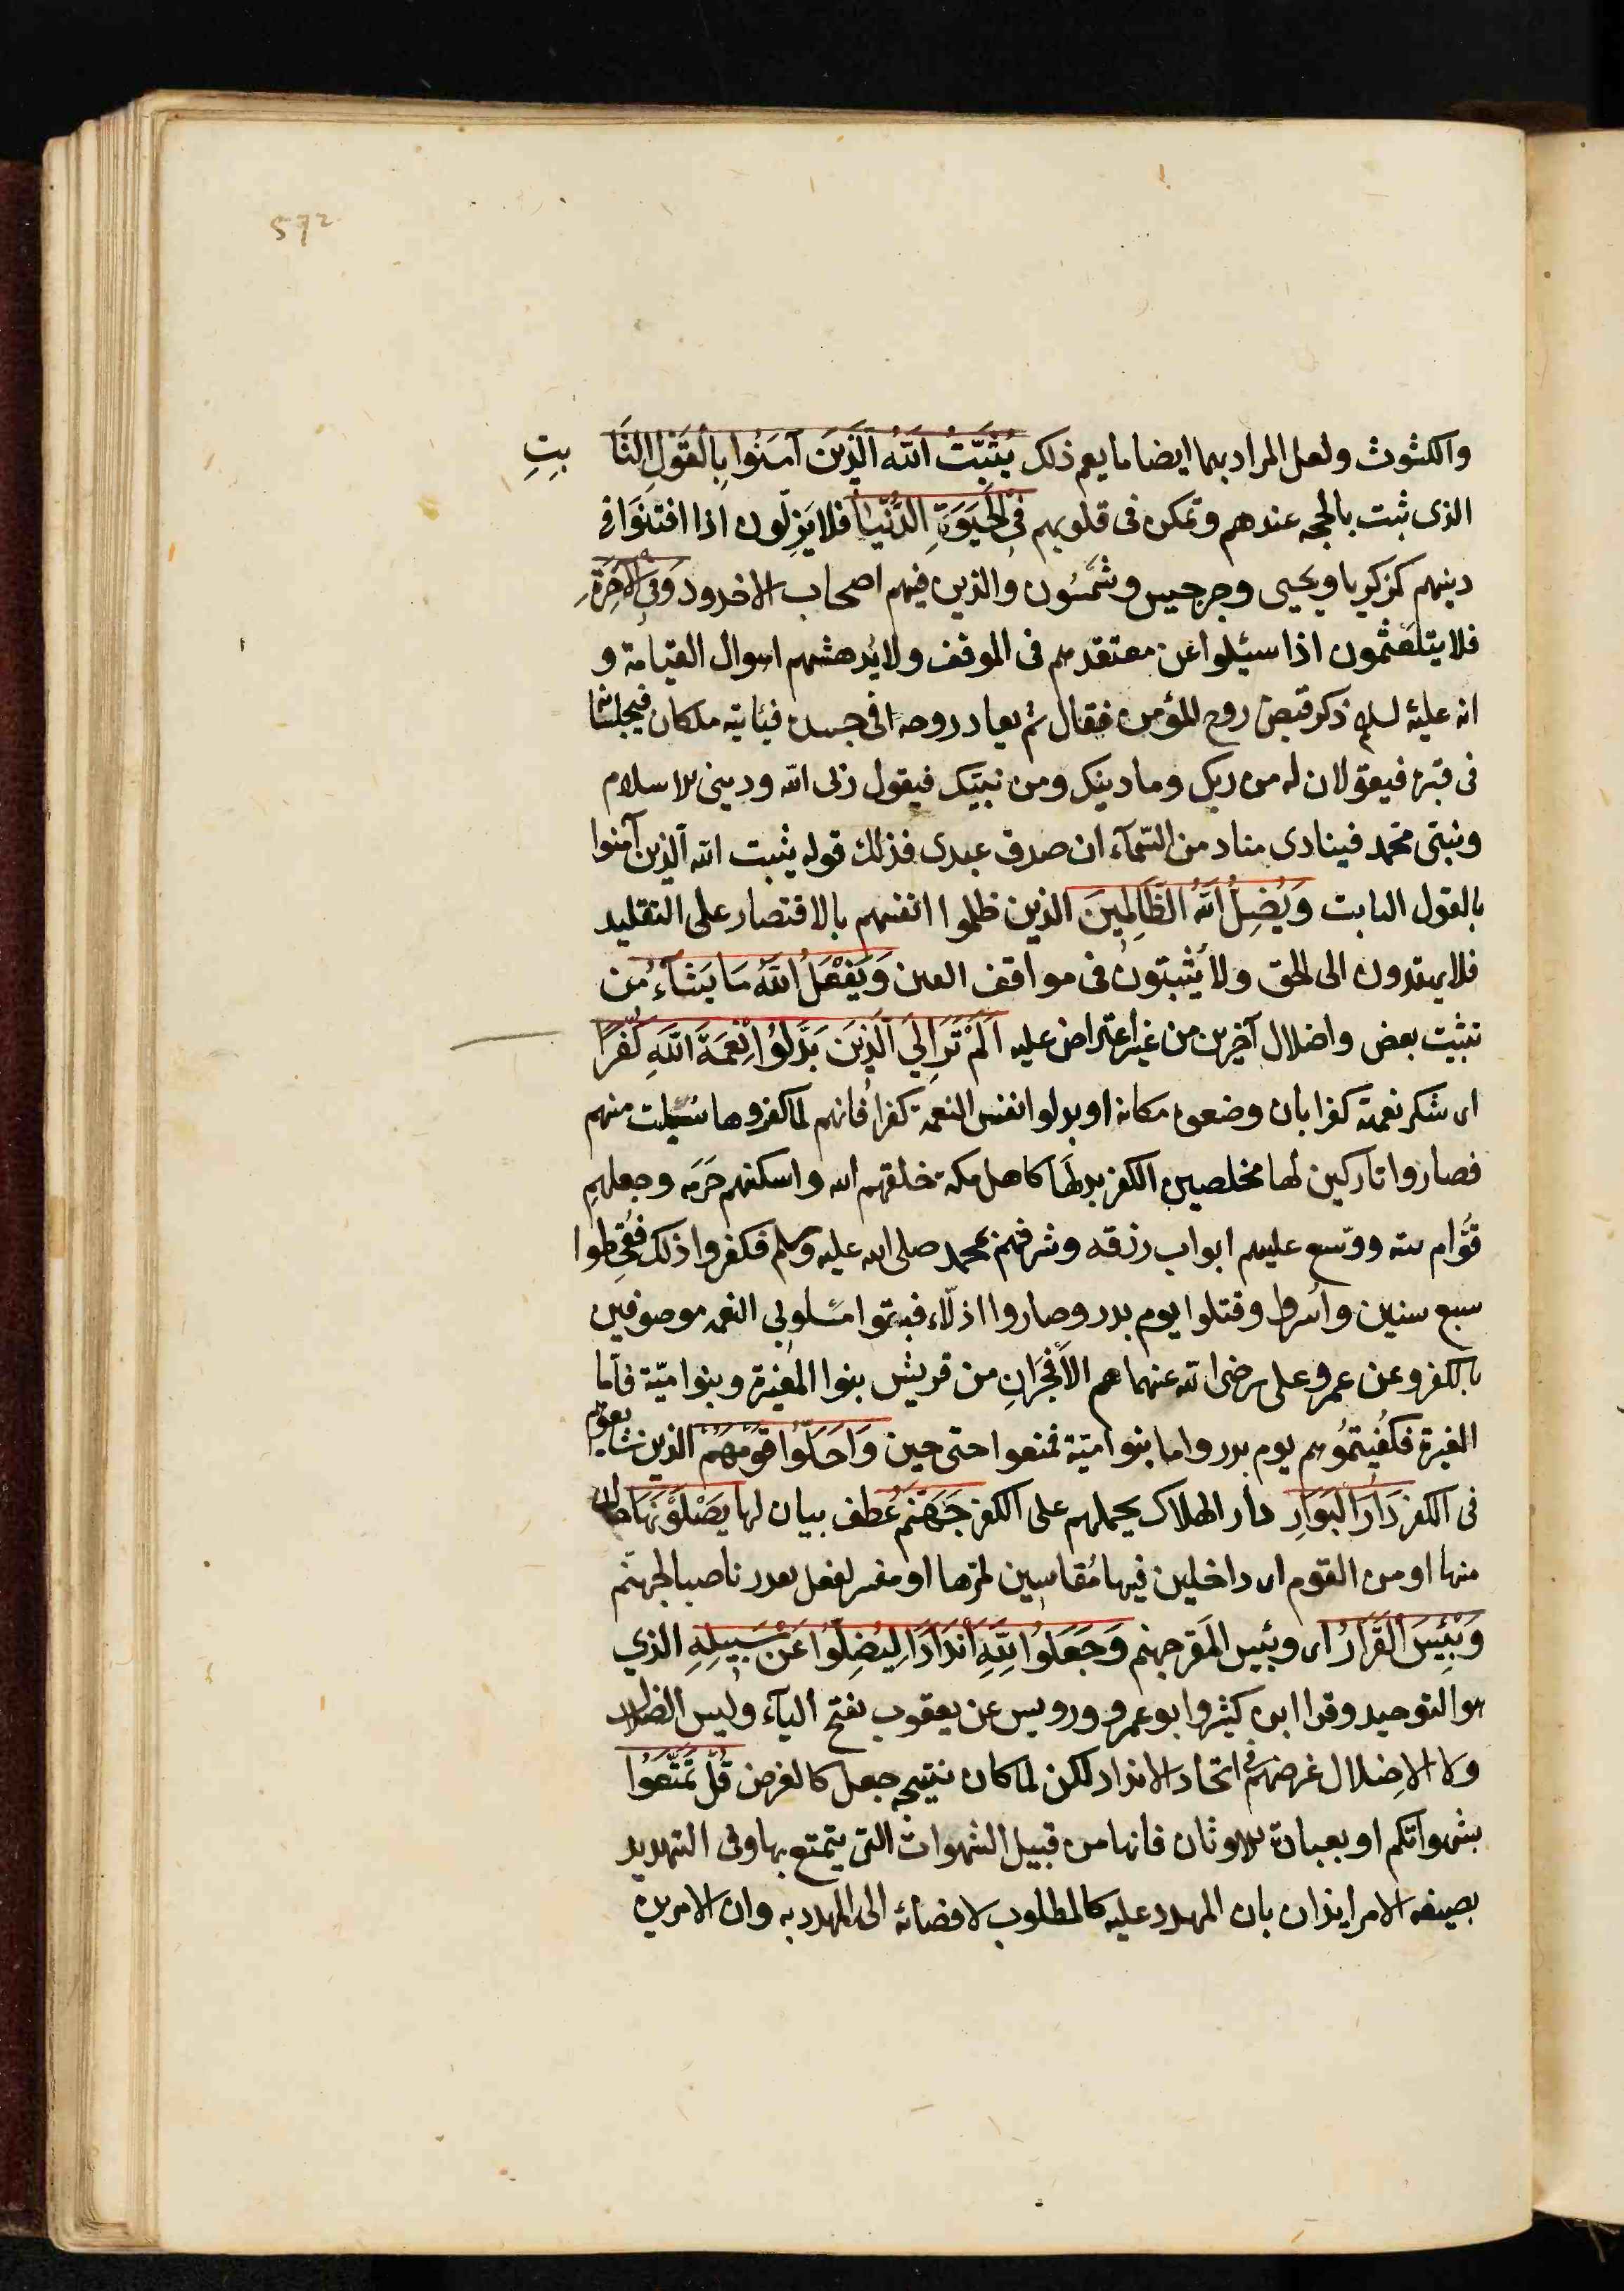 572
والكثوث ولعل المراد بهما ايضا ما يعم ذلك يُثَبِّتُ اللَّهُ الَّذِينَ آمَنُوا بِالْقَوْلِ الثَّابِتِ
الذى ثبت بالحجه عندهم وتمكن فى قلوبهم فِي الْحَيَوةِ الدُّنْيَا فلا يَزِلّون اذا افتتنوا فى
دينهم كزكريا ويحيى وجرجيس وشمسُون والذين فيهم اصحاب الاخدود وَفِي الْآخِرَةِ
فلا يتلَعثمون اذا سئلوا عن معتقدهم فى الموقف ولا يُدهشهم اهوال القيامة و
انه عليه السلام ذكر قبض روح المؤمن فقال ثم يعاد روحه فى جسده فيأتيه ملكان فيجلسانه
فى قبره فيقولان له من ربك وما دينك ومن نبيّك فيقول ربى الله ودينى الاسلام
ونبيّى محمد فينادى مناد من السّمآء ان صدق عبدى فذلك قوله يثبت الله الذين آمنوا
بالقول الثابت وَيُضِلُّ اللَّهُ الظَّالِمِينَ الذين ظلموا انفسهم بالاقتصار على التقليد
فلا يهتدون الى الحق ولا يثبتون فى مواقف الفتن وَيَفْعَلُ اللَّهُ مَا يَشَآءُ من
تثبيت بعض واضلال آخرين من غير اعتراض عليه أَلَمْ تَرَ إِلَى الَّذِينَ بَدَّلُوا نِعْمَةَ اللَّهِ كُفْرًا
اى شكر نعمته كفرا بان وضعوه مكانه او بدلوا نفس النعمة كفرا فانهم لما كفروها سُلبت منهم
فصاروا تاركين لها مخلصين الكفر بدلَها كاهل مكة خلقهم الله واسكنهم حَرَمه وجعلهم
قُوّام بيته ووسّع عليهم ابواب رزقه وشرفهم بمحمد صلى الله عليه وسلم فكفروا ذلك فقُحِطوا
سبع سنين وأُسروا وقتلوا يوم بدر وصاروا اذلّاء فبقوا مسلوبى النعمه موصوفين
بالكفر وعن عمر وعلى رضى الله عنهما هم الأَفْجَرانِ من قريش بنوا المغيرة وبنوا اميّة فأمّا
المغيرة فكُفيتمُوهم يوم بدر واما بنوا اميّة فمتعوا حتى حين وَأَحَلُّوا قَوْمَهُمْ الذين شايعوهم
فى الكفر دَارَ الْبَوَارِ دار الهلاك بحملهم على الكفر جَهَنَّمَ عُطف بيان لها يَصْلَوْنَهَا حال
منها او من القوم اى داخلين فيها مُقاسين لحرّها او مفسر لفعل يقدر ناصبا لجهنّم
وَبِئْسَ الْقَرَارُ اى وبئس المقر جهنم وَجَعَلُوا لِلَّهِ أَنْدَادًا لِيُضِلُّوا عَنْ سَبِيلِهِ الذي
هو التوحيد وقرأ ابن كثير وابو عمرو ورويس عن يعقوب بفتح اليآء وليس الضلال
ولا الاِضلال غرضهم فى اتخاذ الانداد لكن لما كان نتيجه جعل كالغرض قُلْ تَمَتَّعُوا
بشهواتكم او بعبادة الاوثان فانها من قبيل الشهوات التى يتمتع بها وفى التهديد
بصيغه الامر ايذان بان المهدد عليه كالمطلوب لافضائه الى المهدد به وان الامرين